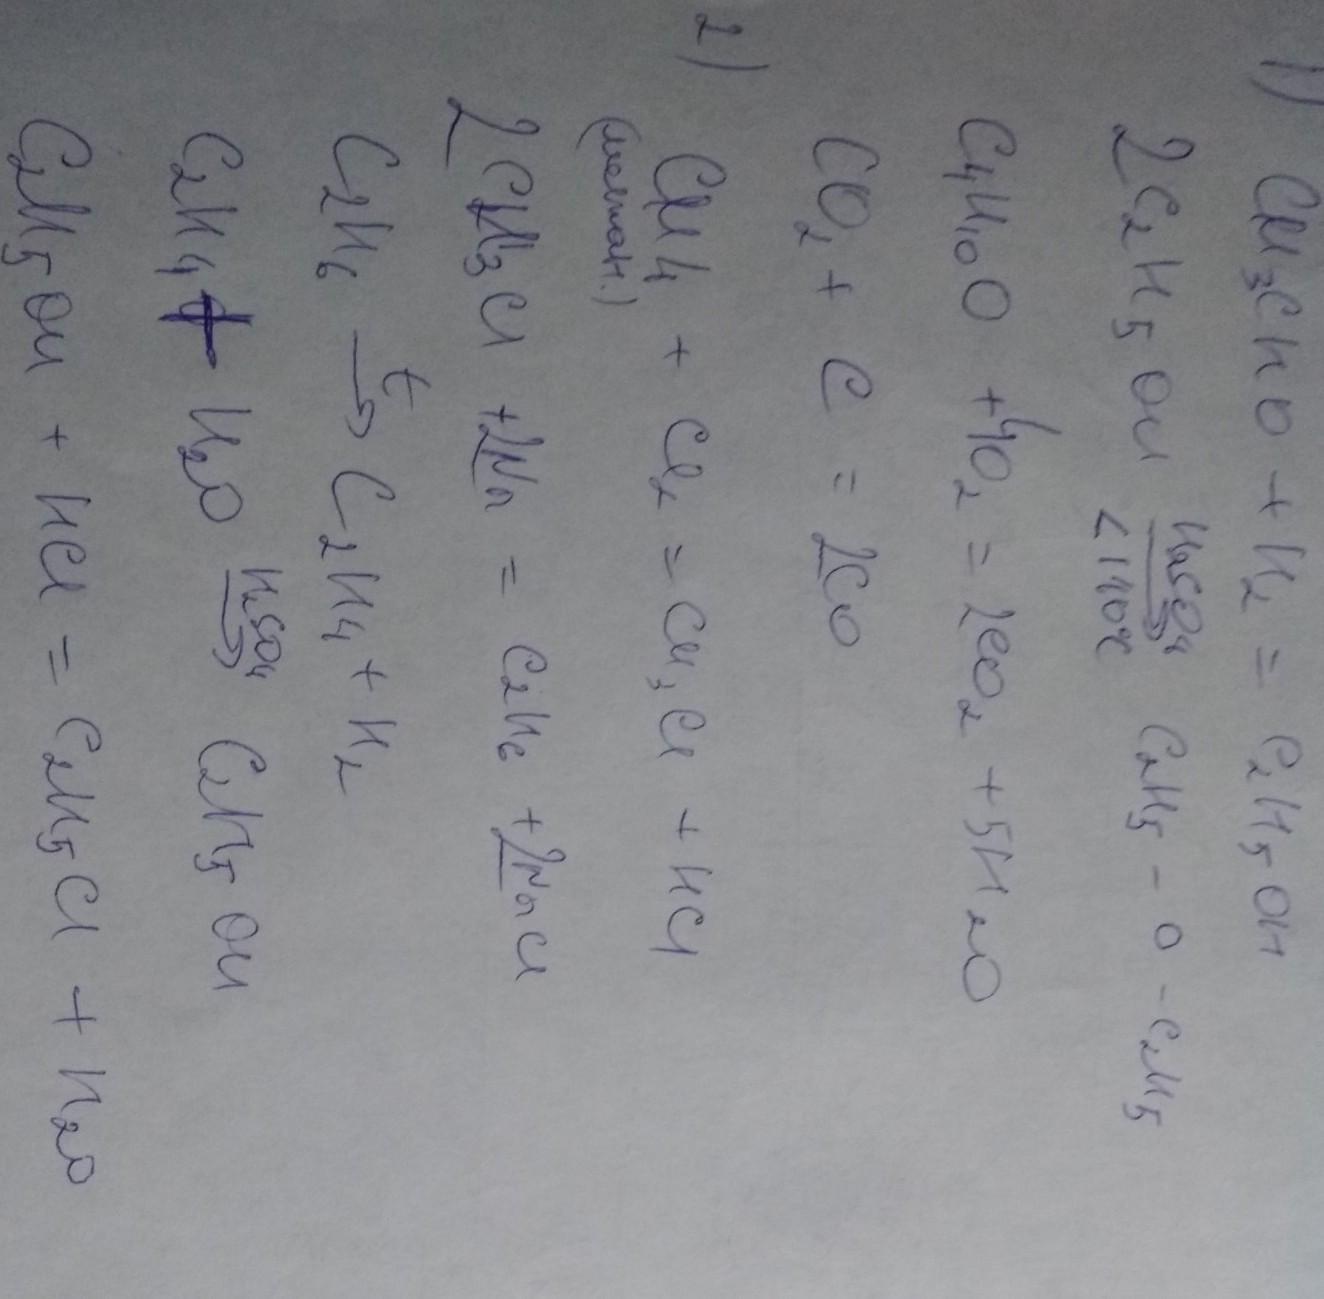 1) CH₃CHO + H₂ = C₂H₅OH
2C₂H₅OH H₂SO₄ → <140°C C₂H₅ - O - C₂H₅
C₄H₁₀O + 4O₂ = 2CO₂ + 5H₂O
CO₂ + C = 2CO
2) CH₄ + Cl₂ = CH₃Cl + HCl
(метан.)
2CH₃Cl + 2Na = C₂H₆ + 2NaCl
C₂H₆ t→ C₂H₄ + H₂
C₂H₄ + H₂O H₂SO₄→ C₂H₅OH
C₂H₅OH + HCl = C₂H₅Cl + H₂O